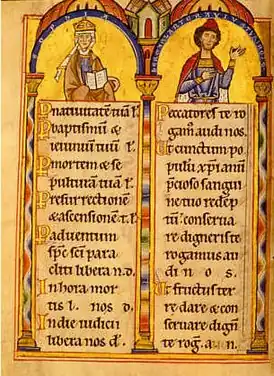 P nativitatē tuā l̄.
P baptismū &
ieiuniū tuū l̄.
P mortem & se
pulturā tuā l̄.
P resurrectionē
& ascensionem t. l̄.
P adventum
sp̄c sc̄i para
cliti libera n. d.
In hora mor
tis l. nos d.
In die iudicii
libera nos d̄.
Peccatores te ro
gam̄ audi nos.
Ut cunctum po
pulū xp̄ianū
p̄cioso sangui
ne tuo redēp
tū conserva
re digneris te
rogamus au
di nos.
Ut fructus ter
re dare & con
servare dign̄
te rog. a. n.